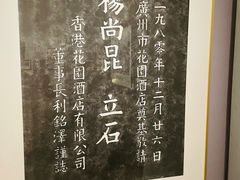 一九八〇年十二月廿六日
廣州市花園酒店奠基敬請
楊尚昆 立石
香港花園酒店有限公司
董事長利銘澤謹誌